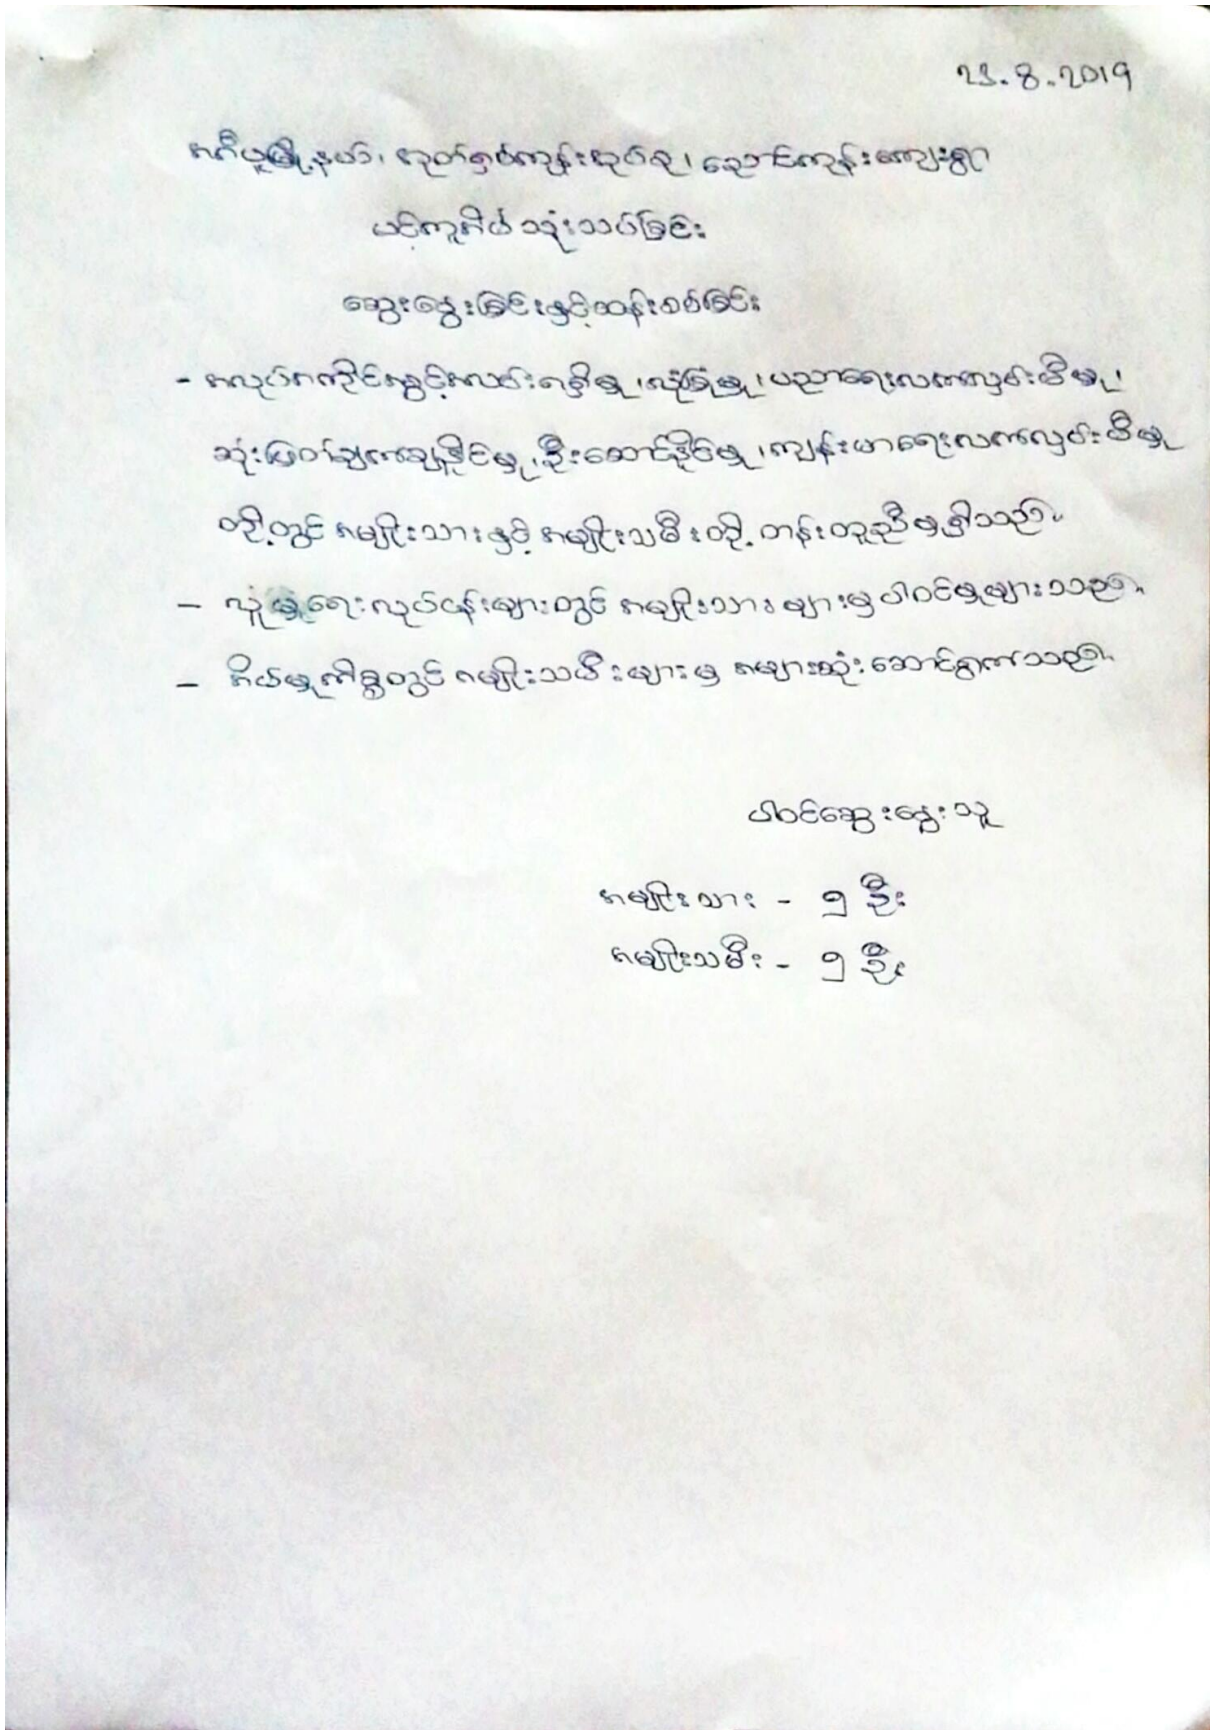 23.8.2019
အင်္ဂပူမြို့နယ်၊ အုတ်ရှစ်ကုန်းအုပ်စု၊ ညောင်ကုန်းကျေးရွာ
ပင့်ကူအိမ် သုံးသပ်ခြင်း
ဆွေးနွေးခြင်းနှင့်ဆန်းစစ်ခြင်း
- အလုပ်အကိုင်အခွင့်အလမ်းရရှိမှု၊ လုံခြုံမှု၊ ပညာရေးလက်လှမ်းမီမှု၊
ဆုံးဖြတ်ချက်ချနိုင်မှု၊ ဦးဆောင်နိုင်မှု၊ ကျန်းမာရေးလက်လှမ်းမီမှု
တို့တွင် အမျိုးသားနှင့် အမျိုးသမီးတို့ တန်းတူညီမျှရှိသည်။
- လူမှုရေးလုပ်ငန်းများတွင် အမျိုးသားများမှ ပါဝင်မှုများသည်။
- အိမ်မှုကိစ္စတွင် အမျိုးသမီးများမှ အများဆုံးဆောင်ရွက်သည်။
ပါဝင်ဆွေးနွေးသူ
အမျိုးသား - ၅ ဦး
အမျိုးသမီး - ၅ ဦး